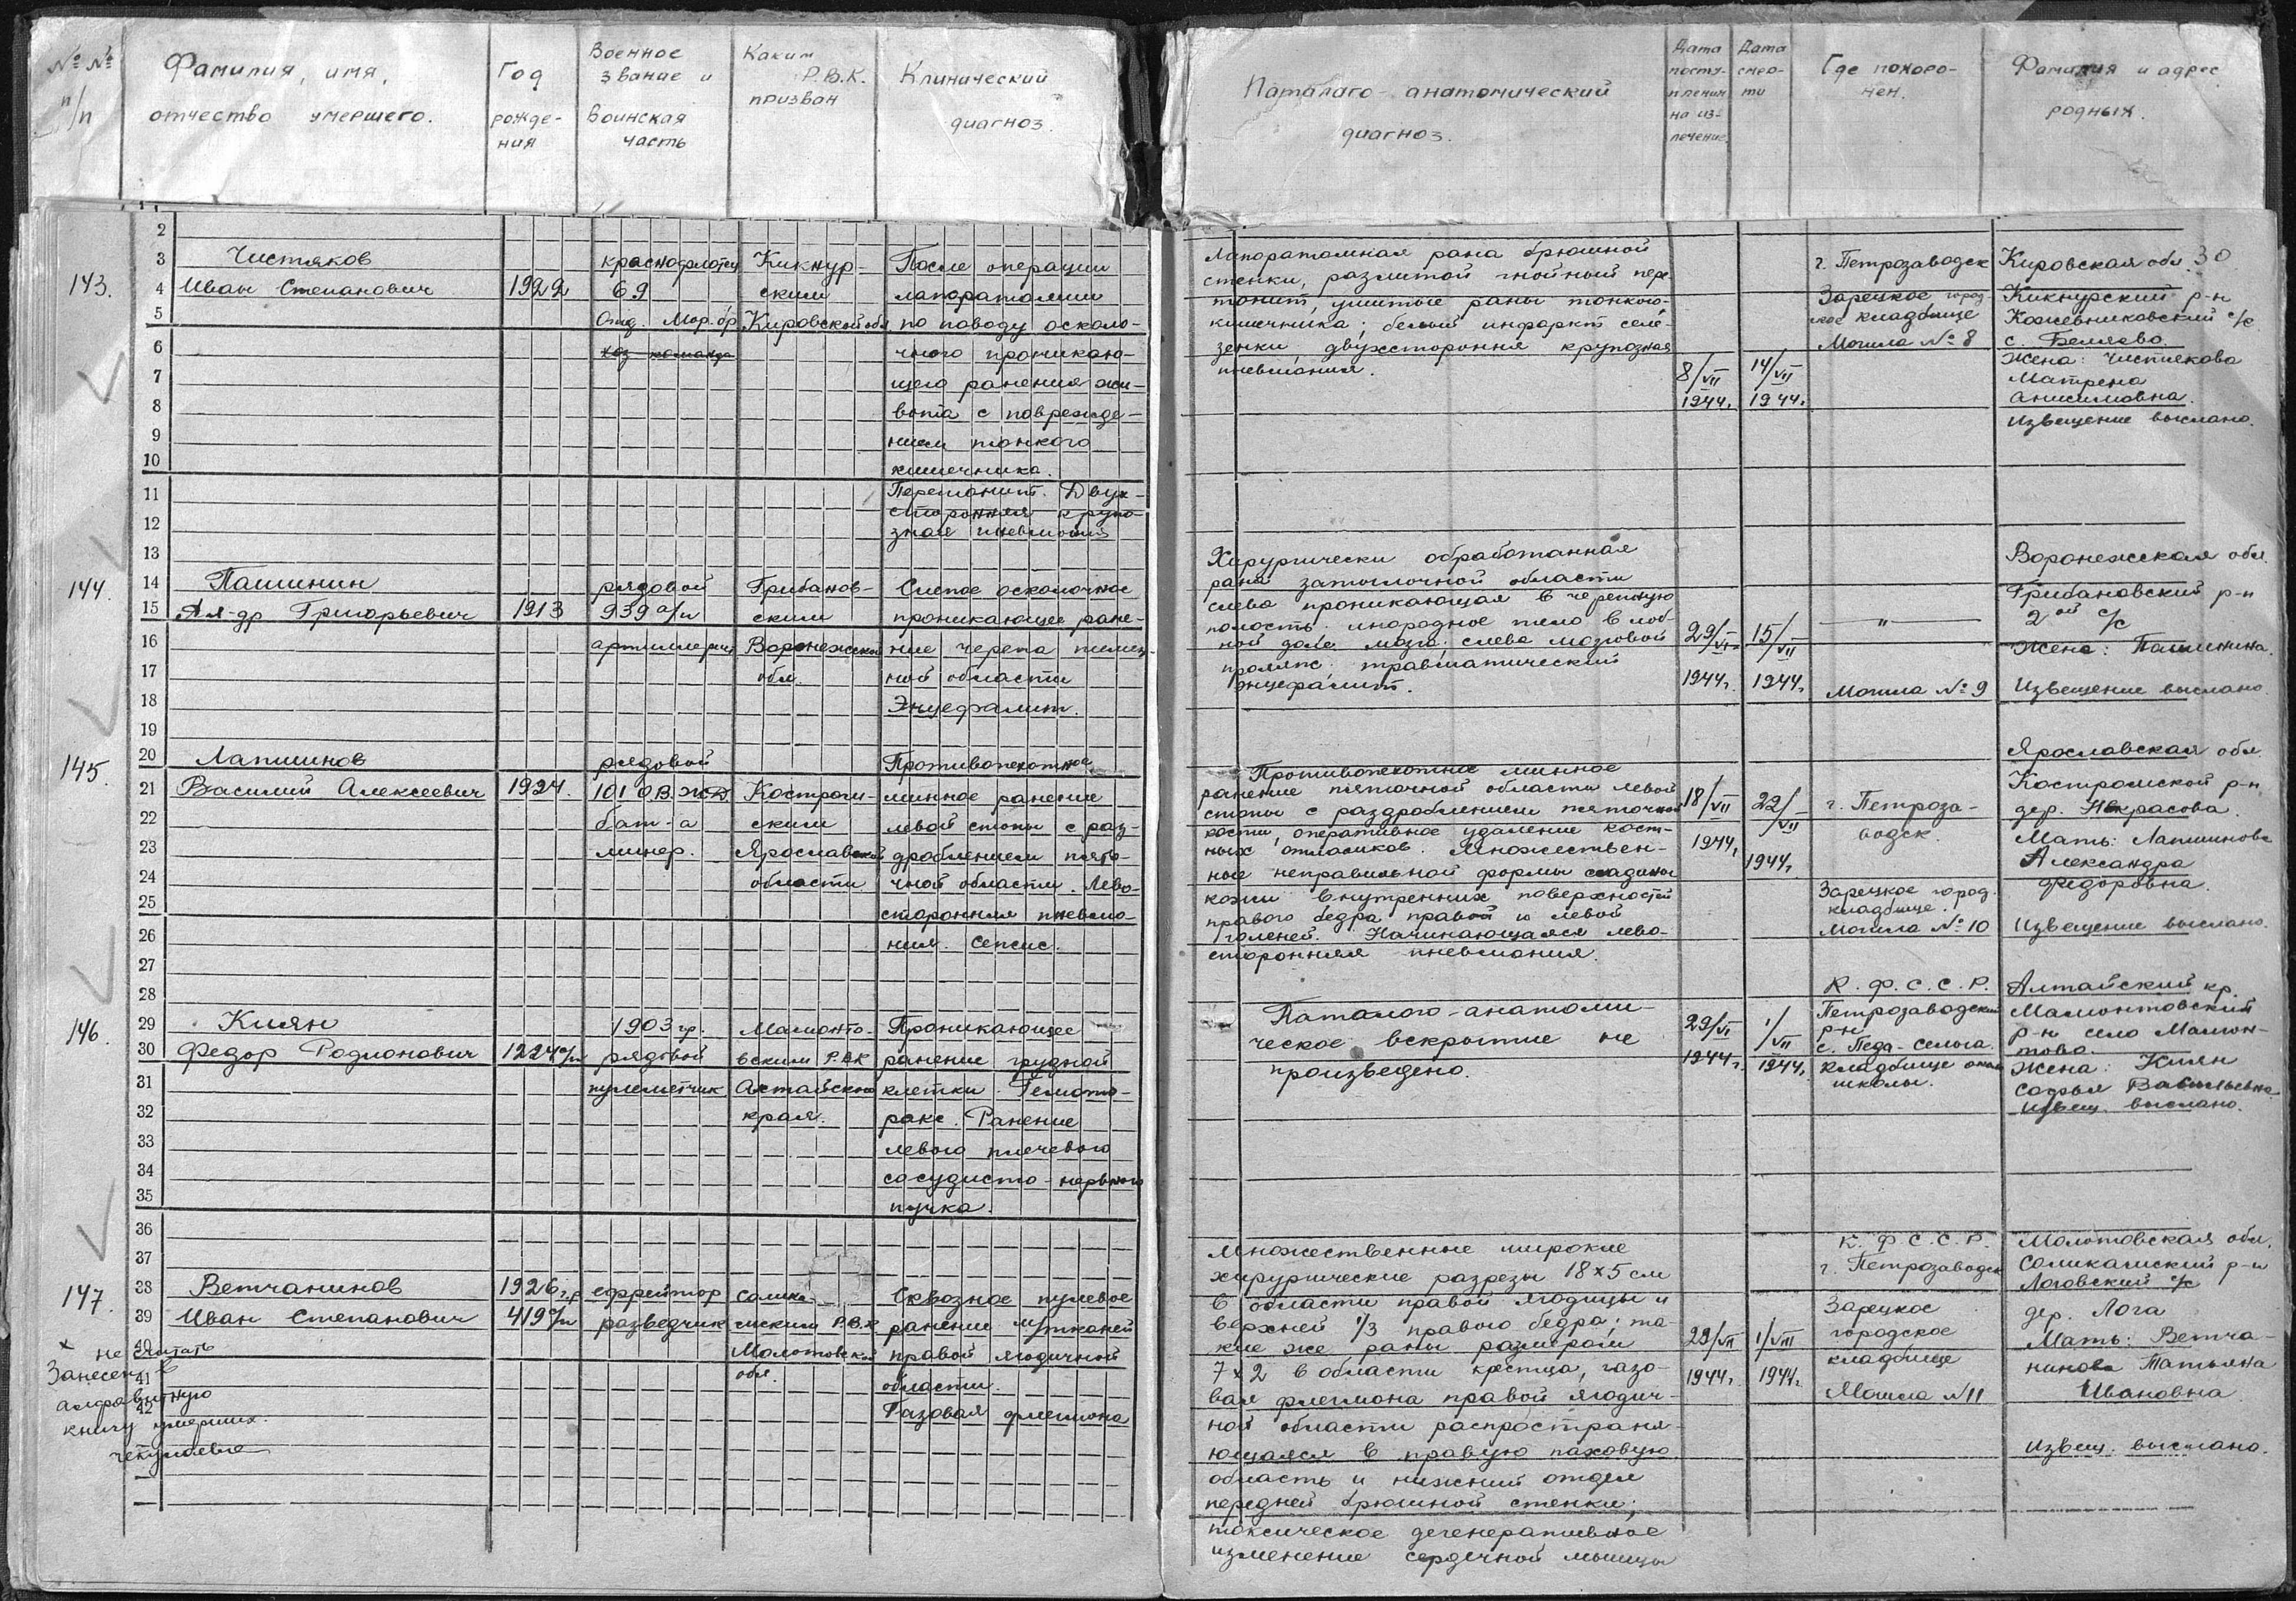 № № п/п
Фамилия, имя, отчество умершего.
Год рожде-
ния
Военное
звание и
воинская
часть
Каким
Р.В.К.
призван
Клинический
диагноз.
Паталаго-анатомический
диагноз.
Дата
посту-
пления
на из-
лечение
Дата
смер-
ти
Где похоро-
нен.
Фамилия и адрес
родных.
30
143.
Чистяков
Иван Степанович
1922
краснофлотец
69
Отд. Мор. бр
хоз команда
Кикнур-
ским
Кировской обл
После операции
лапоратомии
по поводу осколо-
чного проникаю-
щего ранения жи-
вота с поврежде-
нием тонкого
кишечника.
Перетонит. Двух-
сторонняя крупо-
зная пневмония
Лапоратомная рана брюшной
стенки, разлитой гнойный пере-
тонит, ушитые раны тонкого
кишечника; белый инфаркт селе-
зенки, двухсторонняя крупозная
пневмония.
8/VII
1944.
14/VII
1944.
г. Петрозаводск
Зарецкое город-
ское кладбище
Могила № 8
Кировская обл.
Кикнурский р-н
Кожевниковский с/с
с. Беляево.
Жена: Чистякова
Матрена
Анисимовна.
Извещение выслано.
144.
Пашинин
Ал-др Григорьевич
1913
рядовой
939 а/п
артиллерист
Грибанов-
ским
Воронежской
обл.
Слепое осколочное
проникающее ране-
ние черепа темен-
ной области
Энцефалит.
Хирургически обработанная
рана затылочной области
слева проникающая в черепную
полость. инородное тело в лоб-
ной доле мозга; слева мозговой
пролапс. травматический
энцефалит.
29/VI
1944г.
15/VII
1944г.
—"—
Могила № 9
Воронежская обл.
Грибановский р-н
2ой с/с
Жена: Пашинина.
Извещение выслано
145.
Лапшинов
Василий Алексеевич
1924.
рядовой
101 О.В.ЖД.
бат-а
минер.
Костром-
ским
Ярославской
области
Противопехотное
минное ранение
левой стопы с раз-
дроблением пято-
чной области. Лево-
сторонняя пневмо-
ния. Сепсис.
Противопехотное минное
ранение пяточной области левой
стопы с раздроблением пяточной
кости, оперативное удаление кост-
ных отломков. Множествен-
ные неправильной формы ссадины
кожи внутренних поверхностей
правого бедра правой и левой
голеней. Начинающаяся лево-
сторонняя пневмония.
18/VII
1944г.
22/VII
1944г.
г. Петроза-
водск.
Зарецкое город.
кладбище.
Могила № 10
Ярославская обл.
Костромской р-н
дер. Некрасова.
Мать: Лапшинова
Александра
Федоровна.
Извещение выслано.
146.
Киян
Федор Родионович
1224 с/п
1903 гр.
рядовой
пулеметчик
Мамонто-
вским РВК
Алтайского
края.
Проникающее
ранение грудной
клетки. Гемото-
ракс. Ранение
левого плечевого
сосудисто-нервного
пучка.
Паталого-анатоми-
ческое вскрытие не
произведено.
29/VI
1944г.
1/VII
1944г.
К. Ф. С. С. Р.
Петрозаводский
р-н
с. Педа-сельга.
кладбище около
школы.
Алтайский кр.
Мамонтовский
р-н село Мамон-
това.
Жена: Киян
Софья Васильевна
Извещ. выслано.
147.
Ветчанинов
Иван Степанович
1926 г.р.
419 с/п
ефрейтор
разведчик
Солика-
мским Р.В.К
Молотовской
обл.
Сквозное пулевое
ранение м/тканей
правой ягодичной
области.
Газовая флегмона
Множественные широкие
хирургические разрезы 18×5 см
в области правой ягодицы и
верхней 1/3 правого бедра; та-
кие же раны размером
7×2 в области крестца, газо-
вая флегмона правой ягодич-
ной области распространя-
ющаяся в правую паховую
область и нижний отдел
передней брюшной стенки;
токсическое дегенеративное
изменение сердечной мышцы
29/VII
1944г.
1/VIII
1944г.
К. Ф. С. С. Р.
г. Петрозаводск
Зарецкое
городское
кладбище
Могила N 11
Молотовская обл.
Соликамский р-н
Логовский с/с
дер. Лога
Мать: Ветча-
нинова Татьяна
Ивановна
Извещ. выслано.
× не считать
Занесен в
алфавитную
книгу умерших.
2
3
4
5
6
7
8
9
10
11
12
13
14
15
16
17
18
19
20
21
22
23
24
25
26
27
28
29
30
31
32
33
34
35
36
37
38
39
40
41
42